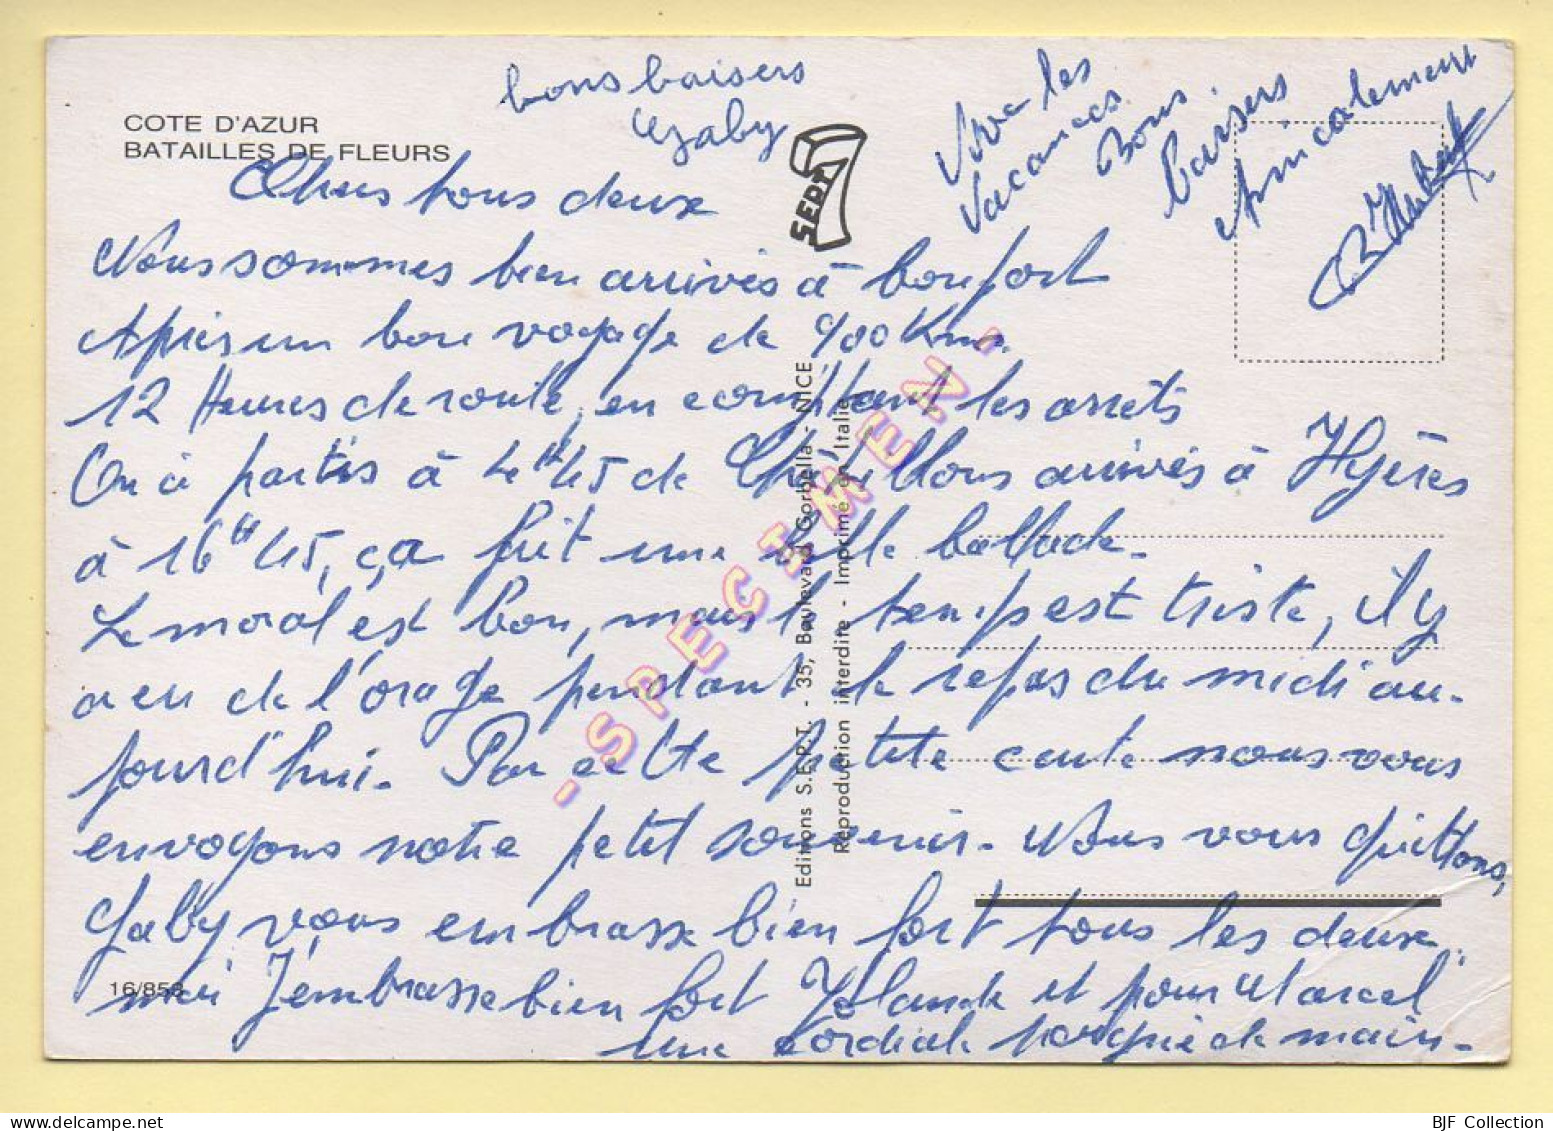 COTE D'AZUR
BATAILLES DE FLEURS
bons baisers
Gaby
Vive les
Vacances
Bons
baisers
amicalement
Chers tous deux
Nous sommes bien arrivés à bon port
Après un bon voyage de 900 Kms.
12 Heures de route, en comptant les arrêts
On à partis à 4H45 de Châtillons arrivés à Hyères
à 16H45, ça fait une belle ballade.
Le moral est bon, mais le temps est triste, il y
a eu de l'orage pendant le repas du midi au-
jourd'hui. Par cette petite carte nous vous
envoyons notre petit souvenir. Nous vous quittons,
Gaby vous embrasse bien fort tous les deux
moi J'embrasse bien fort Yolande et pour Marcel
une cordiale poignée de main.
SEPT
Editions S.E.P.T. - 35, Boulevard Gorbella - NICE
Reproduction interdite - Imprimé en Italie
- SPECIMEN -
16/858
BJF Collection